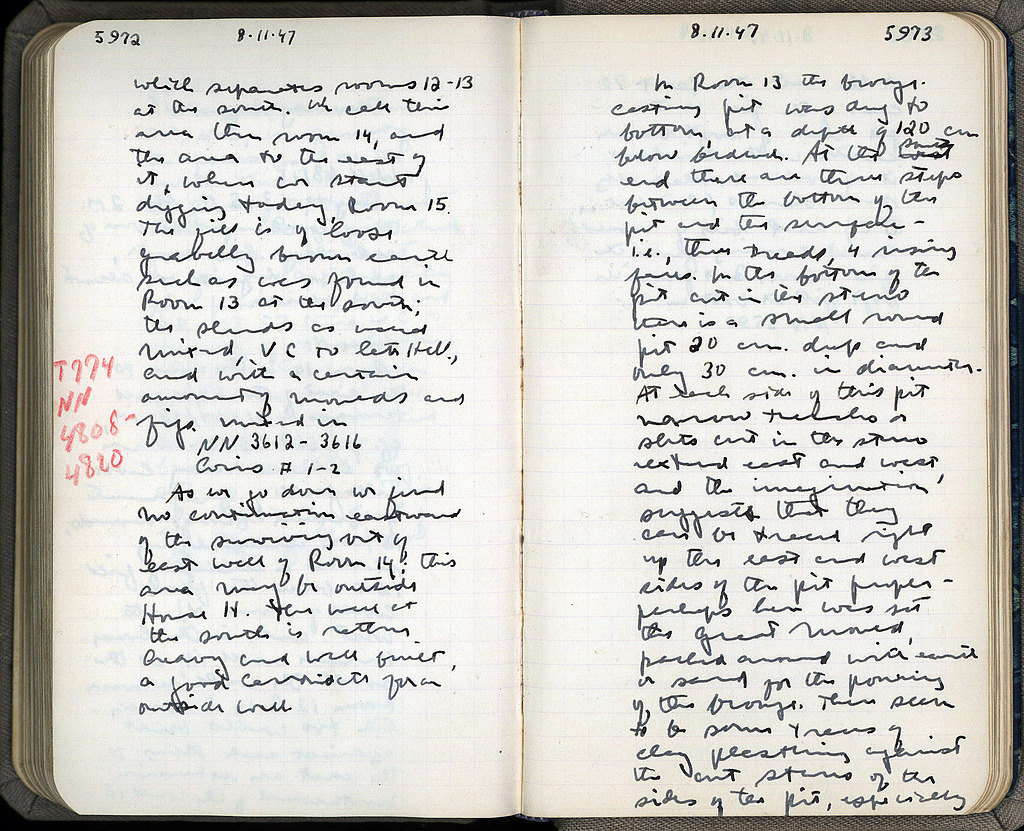 5972
8.11.47
which separates rooms 12-13
at the south. We call this
area then room 14, and
the area to the east of
it, where we start
digging today, Room 15.
The fill is of loose
gravelly brown earth
such as was found in
Room 13 at the south;
the sherds as usual
mixed, V C to late Hell.,
and with a certain
amount of moulds and
figs. mixed in
NN 3612-3616
Coins # 1-2
As we go down we find
no continuation eastward
of the surviving bit of
east wall of Room 14; this
area may be outside
House H. The wall at
the south is rather
heavy and well built,
a good candidate for an
outside wall
T774
NN
4808-
4820
8.11.47
5973
In Room 13 the bronze-
casting pit was dug to
bottom at a depth of 120 cm
below bedrock. At the south
end there are three steps
between the bottom of the
pit and the surface -
i.e., three treads, 4 rising
faces. In the bottom of the
pit cut in the stereo
there is a small round
pit 20 cm. deep and
only 30 cm. in diameter.
At each side of this pit
narrow trenches or
slots cut in the stereo
extend east and west,
and the imagination
suggests that they
can be traced right
up the east and west
sides of the pit proper -
perhaps here was set
the great mould,
packed around with earth
or sand for the pouring
of the bronze. There seem
to be some traces of
clay plastering against
the cut stereo of the
sides of the pit, especially